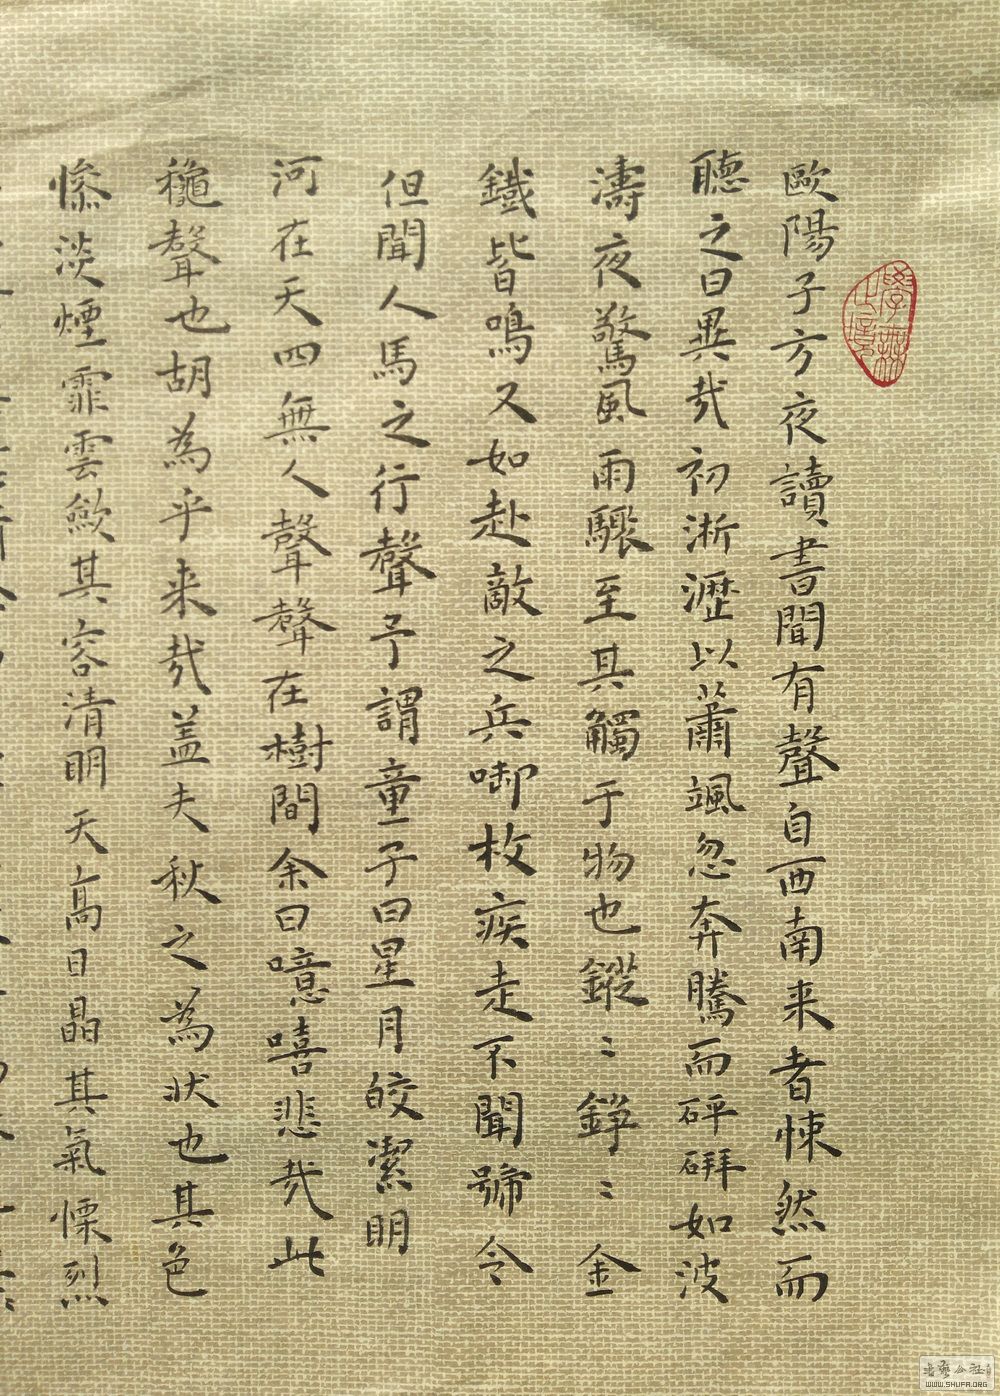 歐陽子方夜讀書聞有聲自西南来者悚然而
聽之曰異哉初淅瀝以蕭颯忽奔騰而砰硼如波
濤夜驚風雨驟至其觸于物也鏦〻錚〻金
鐵皆鳴又如赴敵之兵啣枚疾走不聞號令
但聞人馬之行聲予謂童子曰星月皎潔明
河在天四無人聲聲在樹間余曰噫嘻悲哉此
穐聲也胡為乎来哉盖夫秋之為狀也其色
慘淡煙霏雲歛其容清明天高日晶其氣慄烈
WWW.SHUFA.ORG